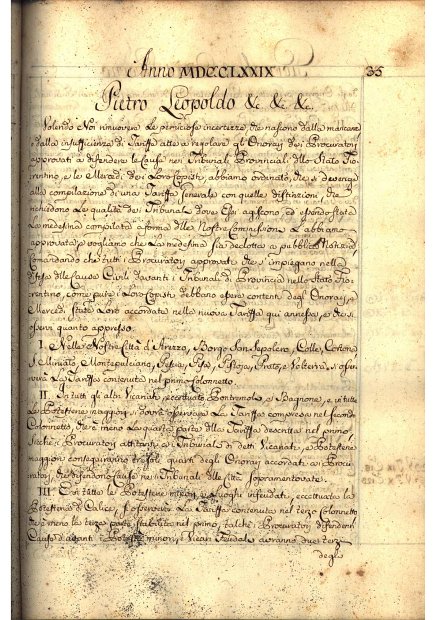 Anno MDCCLXXIX 35
Pietro Leopoldo &c &c &c
Volendo Noi rimuovere Le perniciose incertezze, che nascono dalla mancanza
o dalla insufficienza di Tariffe atte a regolare gli Onorarj dei Procuratori
approvati a difendere le Cause nei Tribunali Provinciali dello Stato Fio-
rentino, e le Mercedi dei Loro Copisti, abbiamo ordinato, che si devenga
alla compilazione di una Tariffa Generale con quelle distinzioni che
richiedono Le qualità dei Tribunali dove Essi agiscono, ed essendo stata
La medesima compilata a forma delle Nostre Commissioni L'abbiamo
approvata, e vogliamo che La medesima sia dedotta a pubblica Notizia,
Comandando che tutti i Procuratori approvati che s'impiegano nella
difesa delle Cause Civili davanti i Tribunali di Provincia nello Stato Fio-
rentino, come pure i Loro Copisti debbano essere contenti degli Onorarj, e
Mercedi state Loro accordate nella nuova Tariffa qui annessa, e che si
osservi quanto appresso.
I. Nelle Nostre Città d'Arezzo, Borgo San Sepolcro, Colle, Cortona
S. Miniato, Montepulciano, Pescia, Pisa, Pistoja, Prato, e Volterra, si osser-
verà La Tariffa contenuta nel primo Colonnetto.
II. In tutti gli altri Vicariati, eccettuato Pontremoli, e Bagnone, e in tutte
Le Potesterie maggiori si dovrà osservare La Tariffa compresa nel secondo
Colonnetto, che è meno La quarta parte della Tariffa descritta nel primo,
Sicchè i Procuratori attitanti ai Tribunali di detti Vicariati, e Potesterie
maggiori conseguiranno tre soli quarti degli Onorarj accordati ai Procu-
ratori, che difendono Cause nei Tribunali delle Città sopramentovate.
III. Con tutte Le Potesterie minori, e Luoghi infeudati, eccettuata La
Potesteria di Calice, si osserverà La Tariffa contenuta nel terzo Colonnetto
che è meno La terza parte stabilita nel primo, talchè i Procuratori difendenti
Cause d'avanti i Potestà minori, e Vicari Feudali avranno due terzi
degli